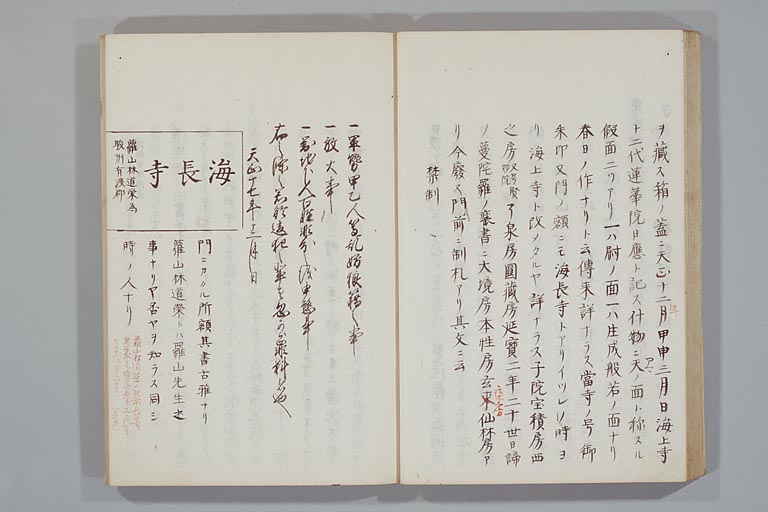 ヲ藏ス箱ノ蓋ニ天正十二月甲申三月日海上寺
十二代蓮華院日應ト記ス什物ニ天ノ面ト称スル
假面二ツアリ一ハ尉ノ面一ハ生成般若ノ面ナリ
春日ノ作ナリト云傳来詳ナラス當寺ノ号御
朱印又門ノ額ニモ海長寺トアリイツレノ時ヨ
リ海上寺ト改メタルヤ詳ナラス子院宝積房西
之房泉房圓藏房延寶二年二十世日諦
ノ曼陀羅ノ裏書ニ大境房本性房玄東仙林房ア
リ今廢ス門前ニ制札アリ其文ニ云
禁制
一軍勢甲乙人等乱妨狼藉之事
一放火事
一
右之條々若於違犯之輩者忽可處罪科者也
天正十七年十二月日
海長寺
羅山林道栄為
駿州有渡郡
門ニカクル所額其書古雅ナリ
羅山林道榮トハ羅山先生之
事ナリヤ否ヤヲ知ラス同シ
時ノ人ナリ